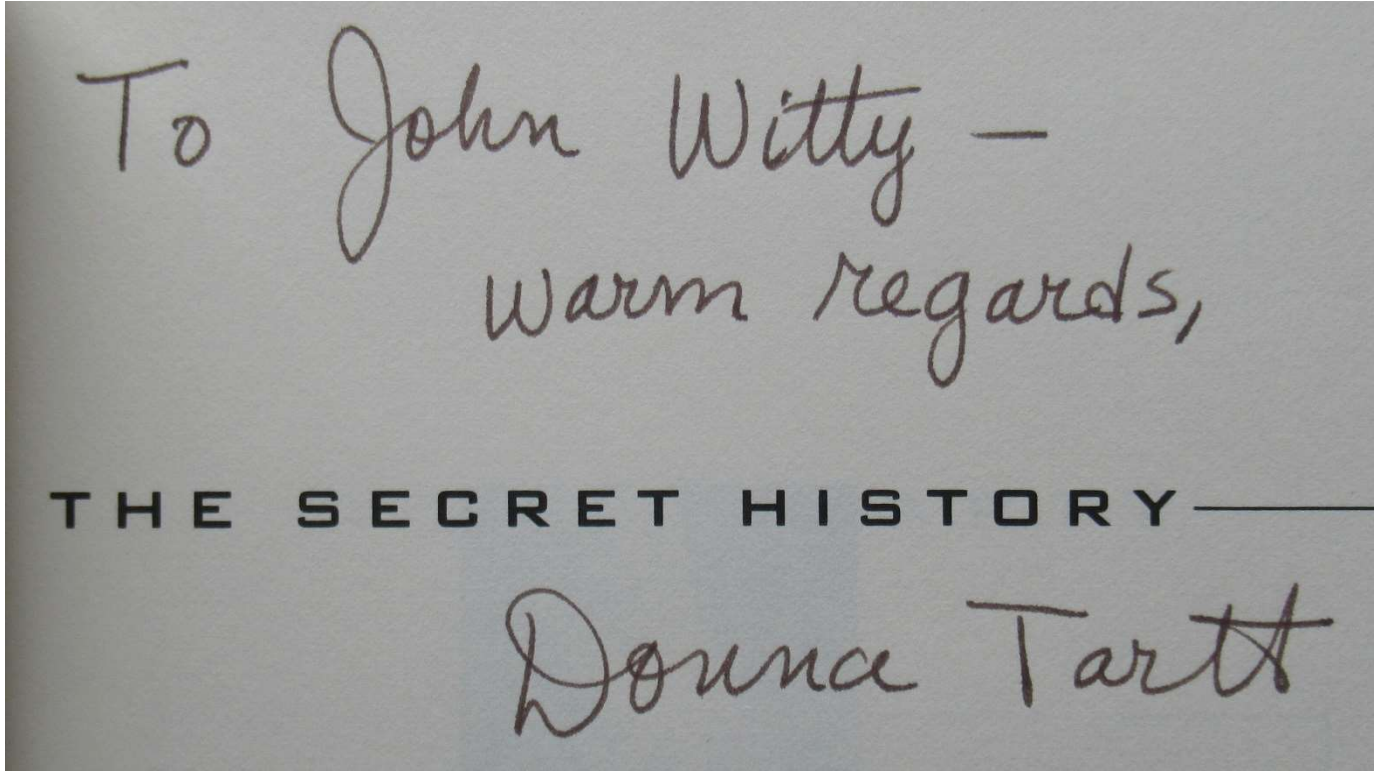 To John Witty —
warm regards,
THE SECRET HISTORY
Donna Tartt